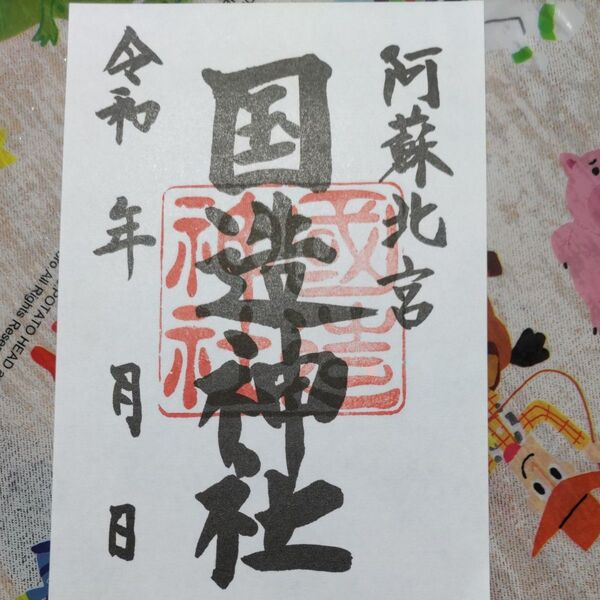 阿蘇北宮
国造神社
國造
神社
令和 年 月 日
POTATO HEAD
All Rights Reser